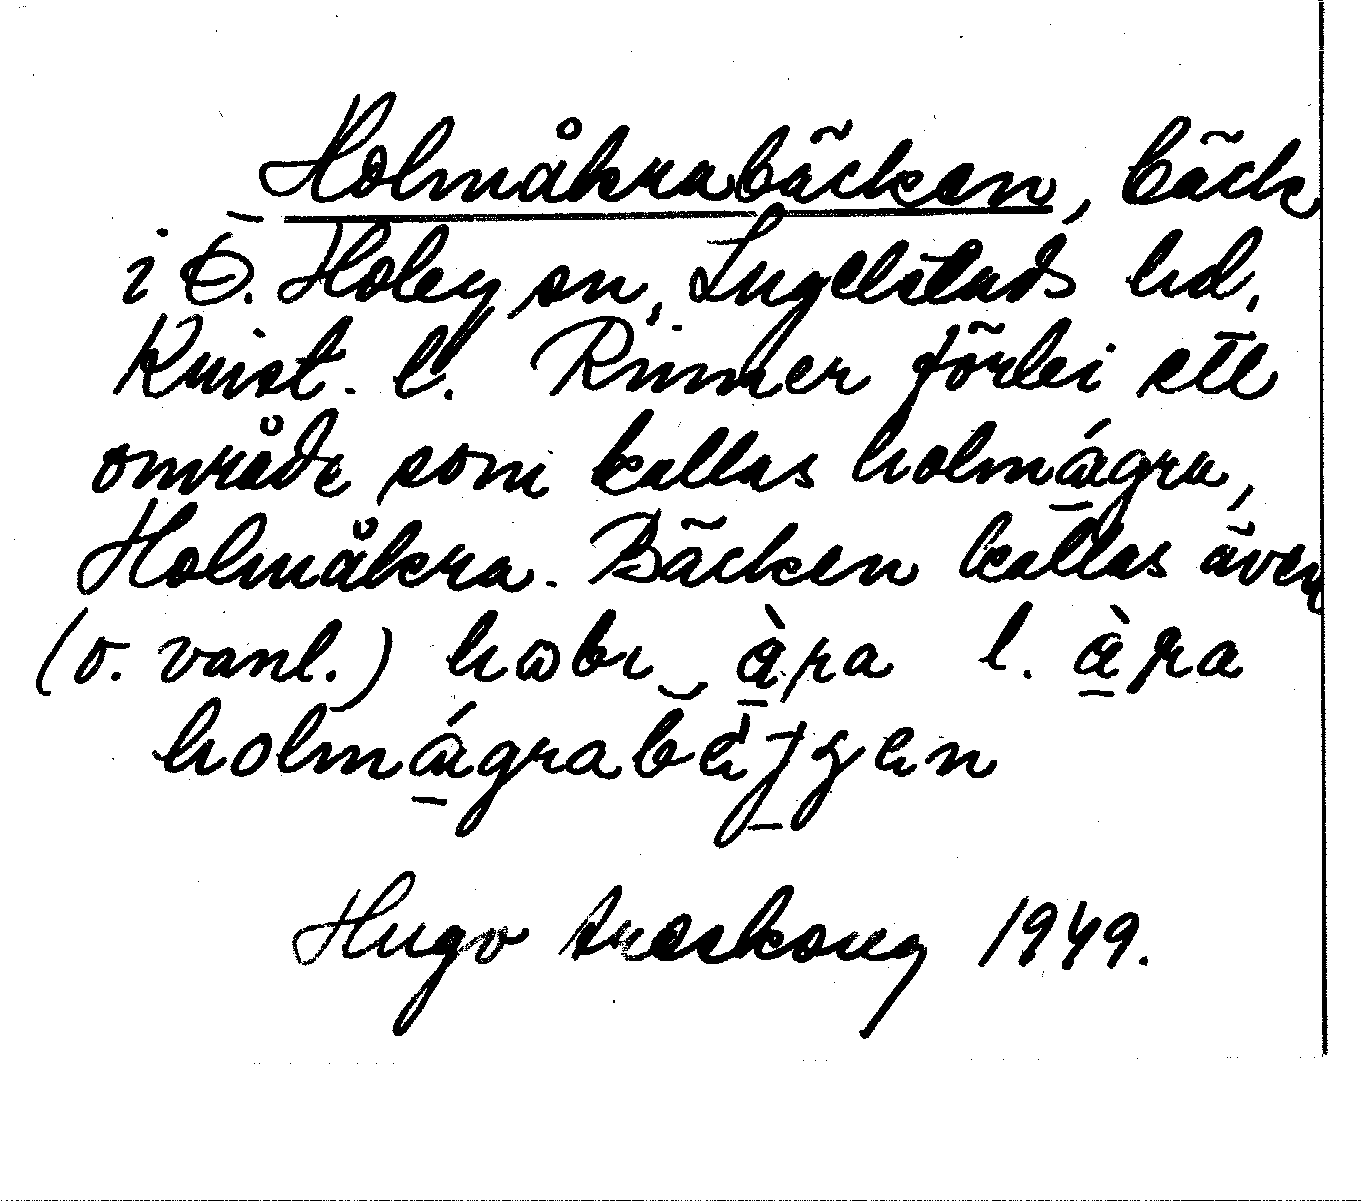 Holmåkrabäcken, bäck
i Ö. Hoby sn, Ingelstads hd,
Krist. l. Rinner förbi ett
område som kallas holmágra,
Holmåkra. Bäcken kallas även
(o. vanl.) àra l. àra
holmágrabäkjen
Hugo Areskoug 1949.